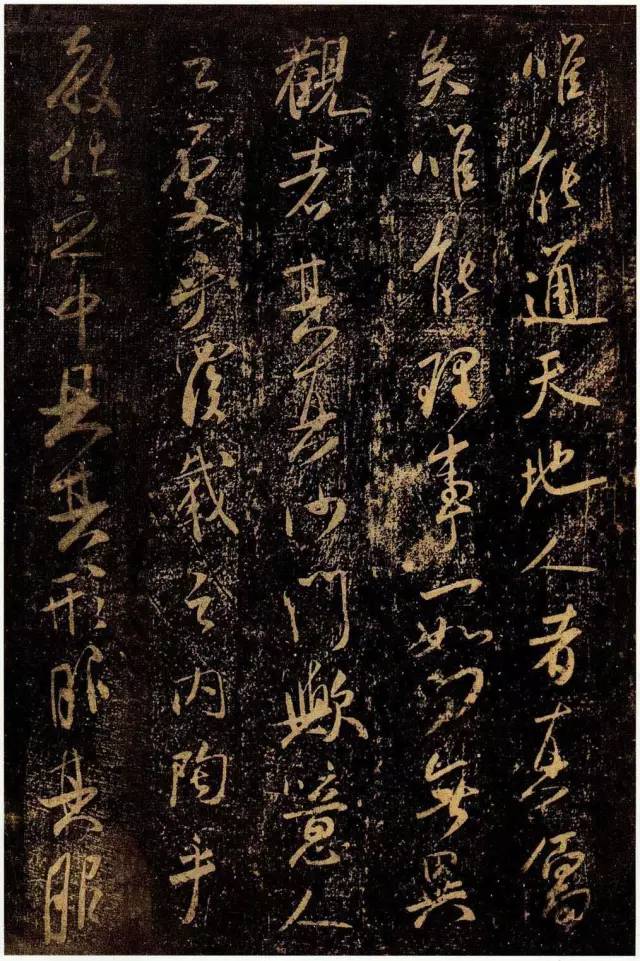 唯能通天地人者真儒
矣唯能理事一如向無異
觀者其真沙門歟噫人
之受乎覆載之內陶乎
教化之中具其形服其服